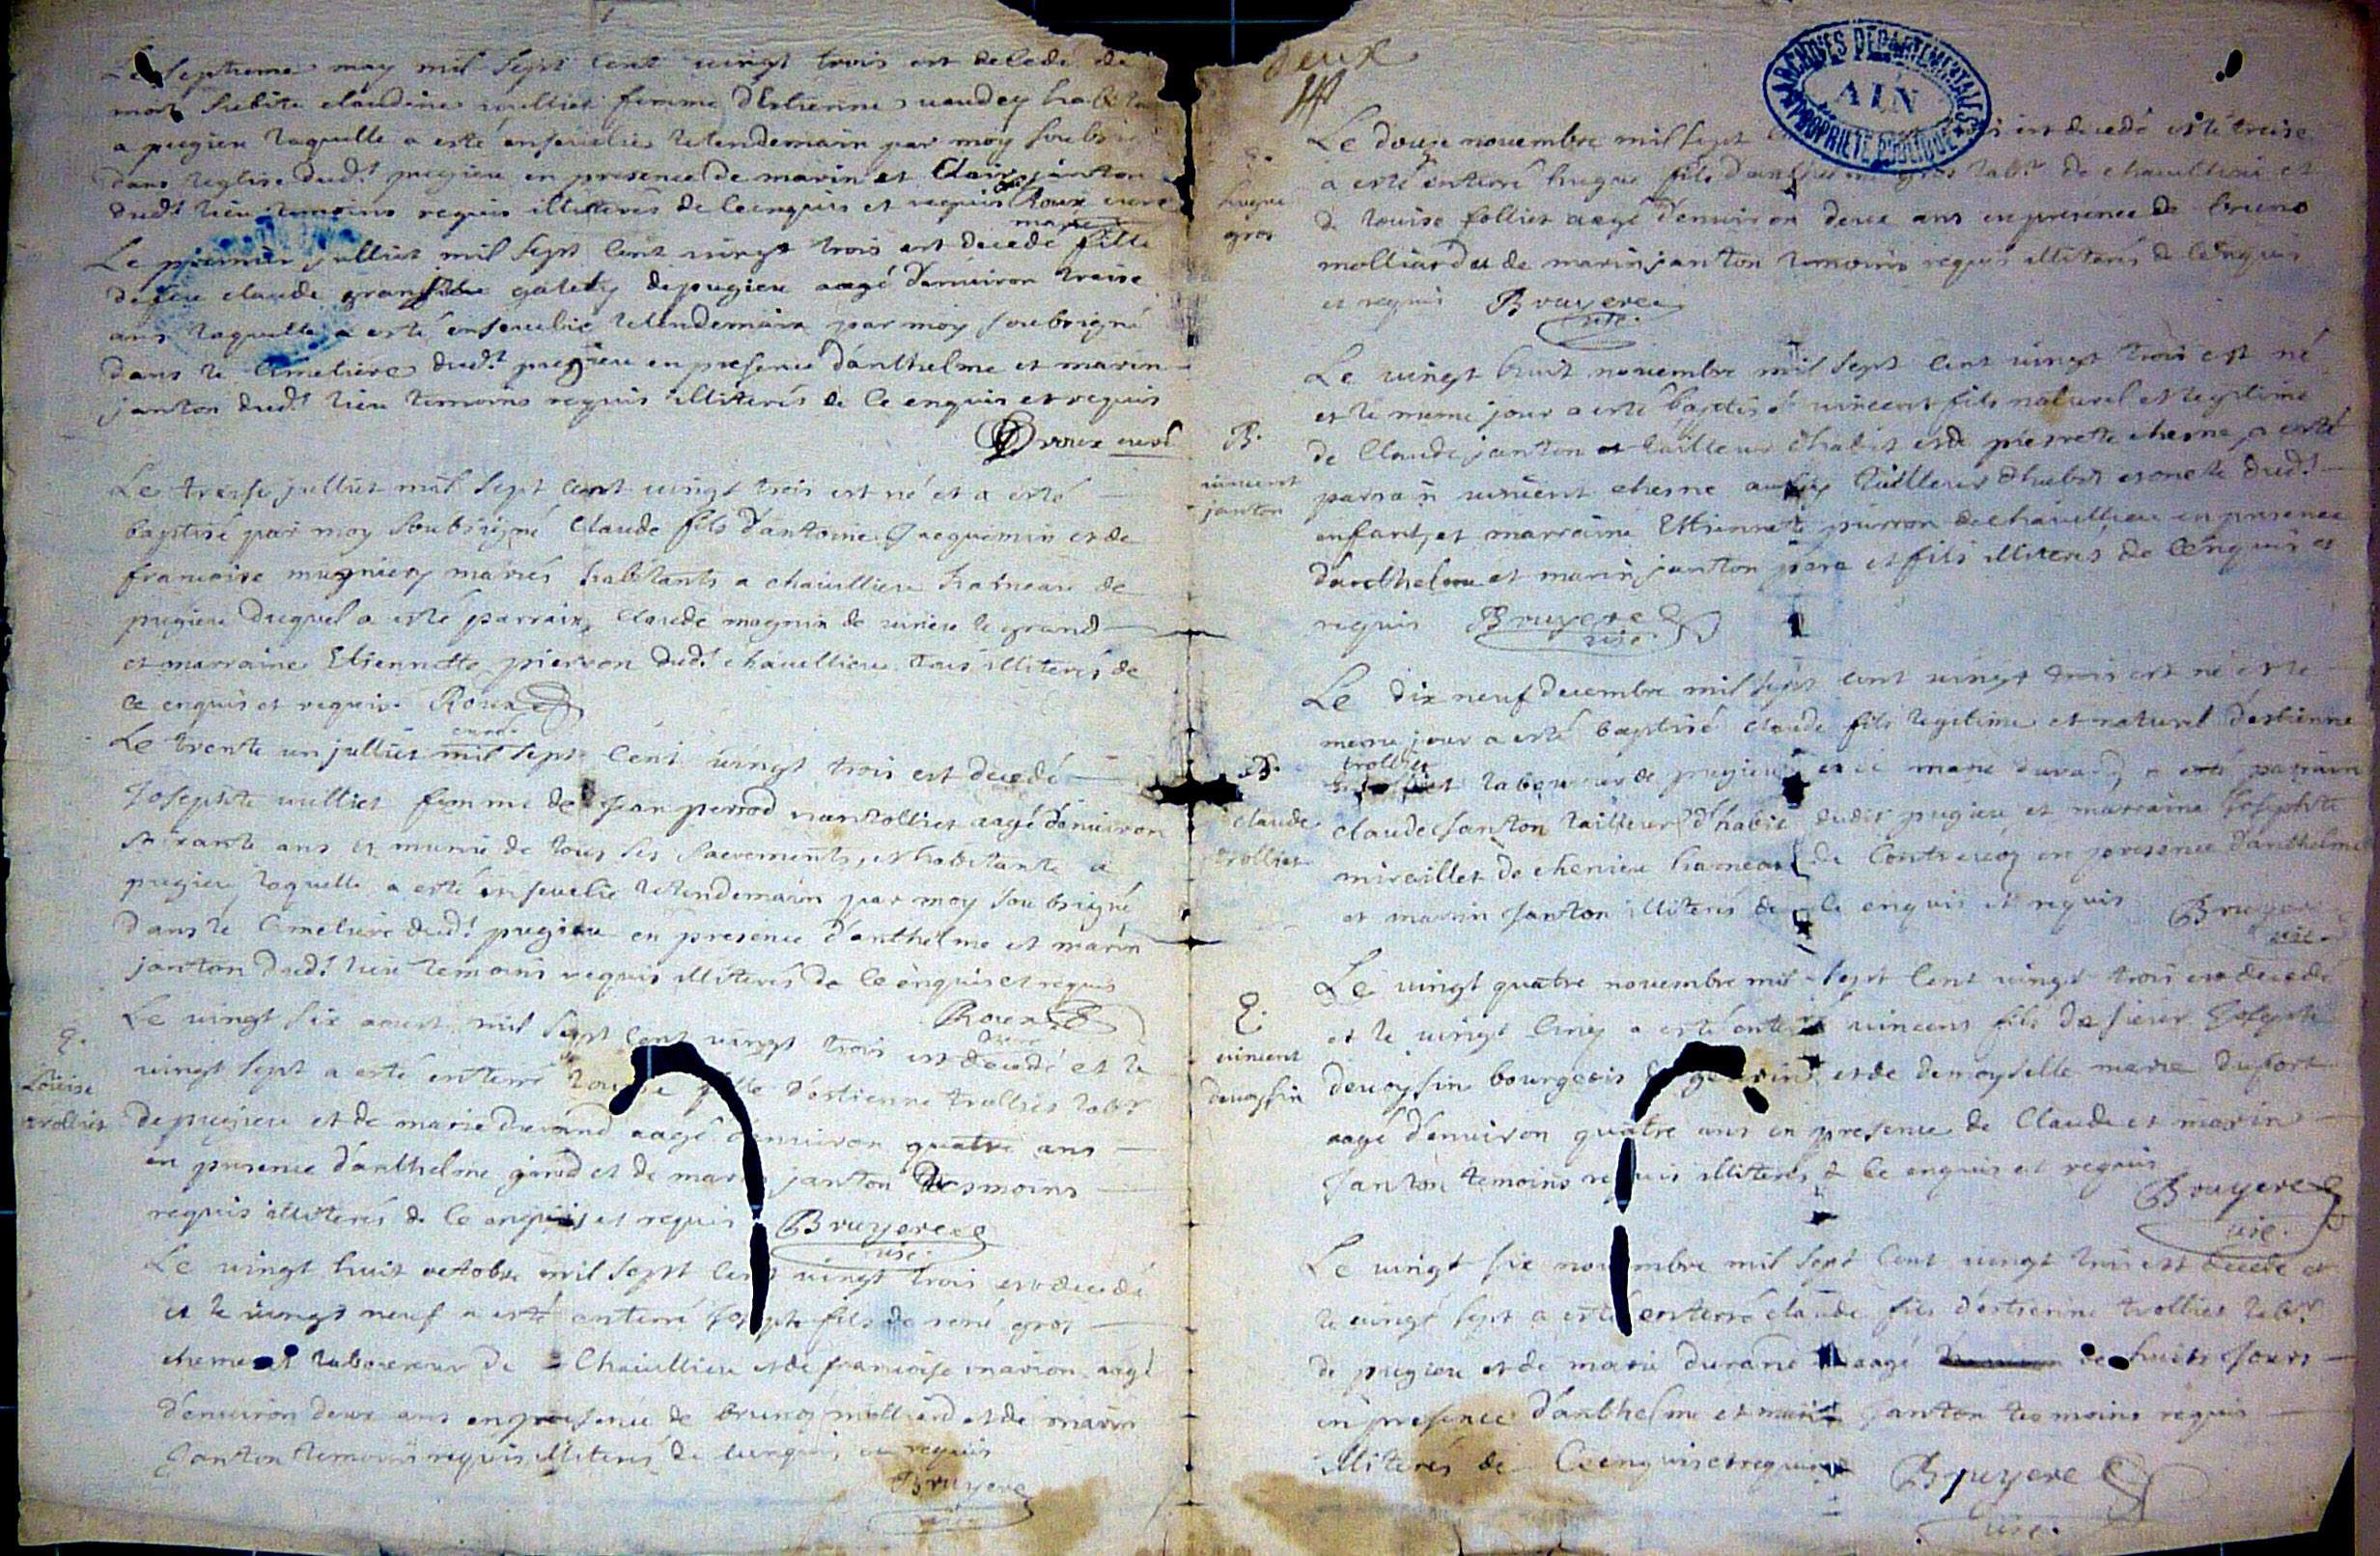 Le septieme may mil sept cent vingt trois est decedé de
mort subite claudine vulliet femme d'Estienne vaudey habita
a pugieu laquelle a esté ensevelie le lendemain par moy soubs
dans leglise dud.t pugieu en presence de marin et Clair janton
dud.t lieu temoins requis illiterés de ce enquis et requis Roux curé
marie
Le premier julliet mil sept cent vingt trois est decedé fille
de feu claude galety de pugieu aagé d'environ traise
ans laquelle a esté ensevelie le lendemain par moy soubsigné
dans le cimetiere dud.t pugieu en presence d'anthelme et marin
janton dud.t lieu temoins requis illiterés de ce enquis et requis
Roux curé
Le treise julliet mil sept cent vingt trois est né et a esté
baptisé par moy soubsigné Claude fils d'antoine Jaquemin et de
francoise mugniery mariés habitants a chavillieu hameau de
pugieu duquel a esté parrain Claude magnin de virieu le grand
et marraine Etiennette pierron dud.t chavillieu tous illiterés de
ce enquis et requis. Roux
curé
Le trente un julliet mil sept cent vingt trois est decedé
Josephte vulliet femme de Jean perrod nantolliet aagé d'environ
soixante ans et munie de tous ses sacrements, et habitante a
pugieu, laquelle a esté ensevelie le lendemain par moy soubsigné
dans le cimetiere dud.t pugieu en presence d'anthelme et marin
janton dud.t lieu temoins requis illiterés de ce enquis et requis
Roux
curé
Le vingt six aoust mil sept cent vingt trois est decedé et le
E.
vingt sept a esté enterré Louise fille d'estienne trollier lab.r
Loüise
trollier
de pugieu et de marie durand aagé d'environ quatre ans
en presence d'anthelme et de marin janton tesmoins
requis illiterés de ce enquis et requis Bruyere
vic.
Le vingt huit octobre mil sept cent vingt trois est decedé
et le vingt neuf a esté enterré Joseph fils de rené gros
laboureur de Chavillieu et de francoise marion aagé
d'environ deux ans en presence de bruno molliard et de marin
Janton temoins requis illiterés de cenquis et requis
Bruyere
vic.
deux
Le douze novembre mil sept est decedé et le treise
E.
hugue
gros
a esté enterré hugue fils gros lab.r de chavillieu et
de louise follier aagé d'environ deux ans en presence de bruno
molliard et de marin janton temoins requis illiterés de cenquis
et requis Bruyere
vic.
Le vingt huit novembre mil sept cent vingt trois est né
et le meme jour a esté baptisé vincent fils naturel et legitime
B.
vincent
janton
de Claude janton tailleur d'habit et de pierrette chesne, a esté
parrain vincent chesne tailleur d'habit dud.t
enfant, et marraine Ettiennette pierron de chavillieu en presence
d'anthelme et marin janton pere et fils illiterés de cenquis et
requis Bruyere
vic.
Le dix neuf decembre mil sept cent vingt trois est né et le
meme jour a esté baptisé claude fils legitime et naturel d'estienne
trollier
B.
claude
trollier
laboureur de pugieu et de marie durand, a esté parrain
claude Janton tailleur d'habit dudit pugieu et marraine Josephte
miraillet de chenieu hameau de Contrevoz en presence d'anthelme
et marin Janton illiterés de ce enquis et requis Bruyere
vic.
Le vingt quatre novembre mil sept cent vingt trois est decedé
E.
vincent
devoysin
et le vingt cinq a esté enterré vincent fils de sieur Josephte
devoysin bourgeois de et de demoyselle marie duport
aagé d'environ quatre ans en presence de Claude et marin
Janton temoins requis illiterés de ce enquis et requis
Bruyere
vic.
Le vingt six novembre mil sept cent vingt trois est decedé et
le vingt sept a esté enterré claude fils d'estienne trollier lab.r
de pugieu et de marie durand aagé de huits jours
en presence d'anthelme et marin Janton tesmoins requis
illiterés de Ceenquis et requis Bruyere
vic.
ARCHIVES DEPARTEMENTALES
AIN
PROPRIETE PUBLIQUE